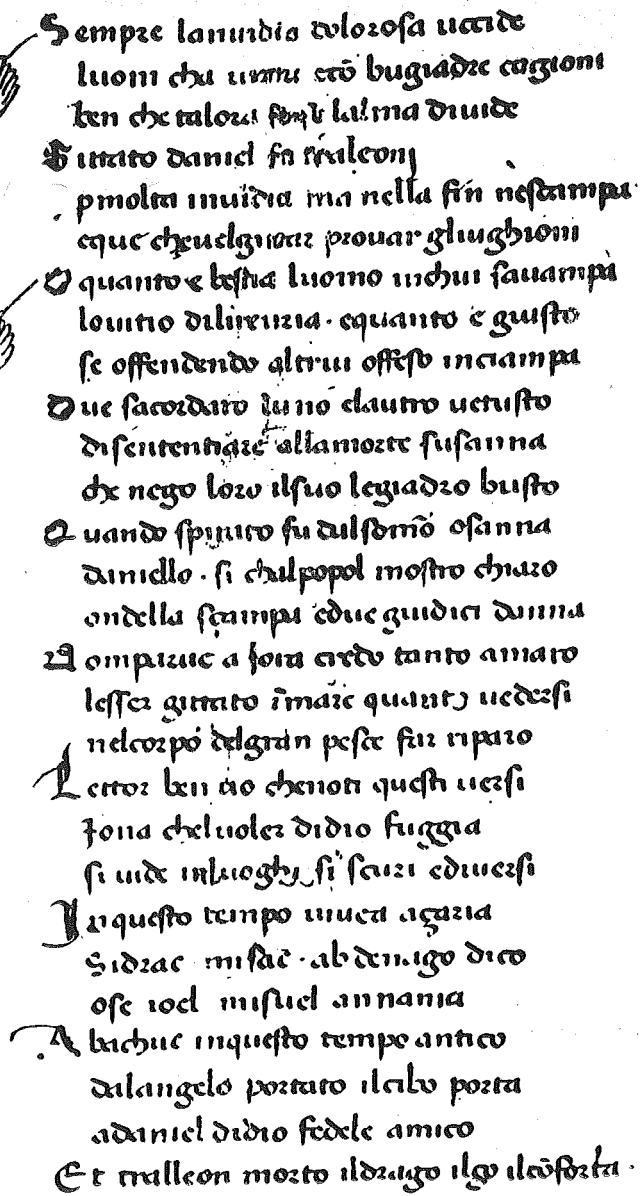 Sempre lanuidia dolorosa uccide
luom cha unnu cō bugiadre cagioni
ben che talora lalma diuide
Gittato daniel fu tra leonj
p molta inuidia ma nella fin nescampa
eque cheuel prouar gliughioni
O quanto e bestia luomo inchui sauampa
louitio dilirenzia · equanto e giusto
se offendendo altrui offeso inciampa
Due sacordaro luno elautro uetusto
disentenziare allamorte susanna
che nego loro ilsuo legiadro busto
Quando spirato fu dalsōmo osanna
daniello · si chalpopol mostro chiaro
ondella scampa edue guidici danna
Non paruue a Jona credo tanto amaro
lesser gittato ī mare quanto uedersi
nelcorpo delgran pesce fur riparo
Lettor ben cio chenoti questi uersi
Jona cheluoler didio fuggia
si uide inluoghi si scuri ediuersi
In questo tempo uiuea açaria
Sidrac misac · abdenago dico
ose ioel misael annania
Abachuc inquesto tempo antico
dalangelo portato ilcibo porta
adaniel didio fedele amico
Et tralleon morto ildrago ilgo ilcōforta ·